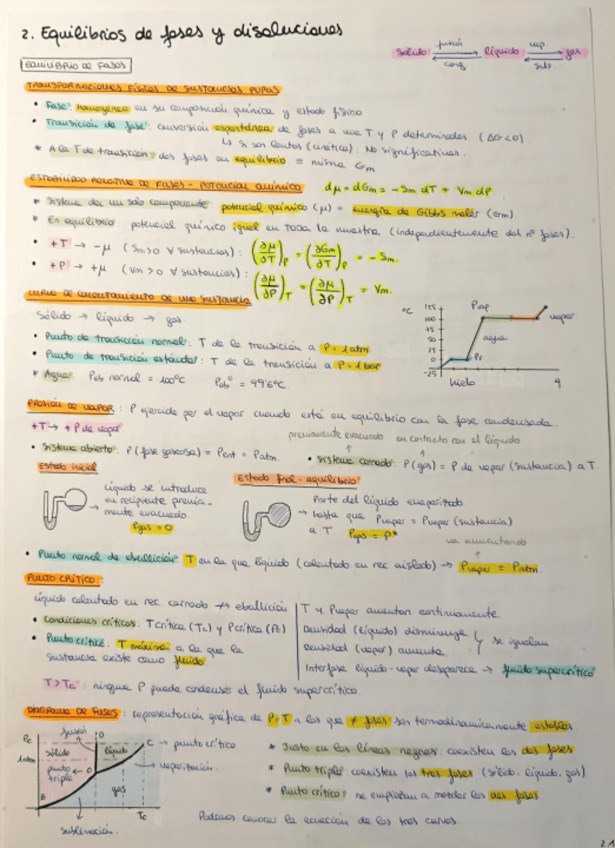 2. Equilibrios de fases y disoluciones
sólido fusión cong. líquido vap. gas
EQUILIBRIO DE FASES
TRANSFORMACIONES FÍSICAS DE SUSTANCIAS PURAS
• Fase: homogénea en su composición química y estado físico
• Transición de fase: conversión espontánea de fases a una T y P determinadas. (ΔG<0)
↳ Si son lentas (cinética): No significativas.
* A la T de transición: dos fases en equilibrio = misma Gm
ESTABILIDAD RELATIVA DE FASES - POTENCIAL QUÍMICO dμ = dGm = -Sm dT + Vm dP
* Sistema de un solo componente: potencial químico (μ) = energía de Gibbs molar (Gm)
* En equilibrio: potencial químico igual en TODA la muestra (independientemente del nº fases).
• +T → -μ (Sm>0 ∀ sustancias): (∂μ/∂T)P = (∂Gm/∂T)P = -Sm.
• +P → +μ (Vm>0 ∀ sustancias): (∂μ/∂P)T = (∂μ/∂P)T = Vm.
CURVA DE CALENTAMIENTO DE UNA SUSTANCIA
sólido → líquido → gas
• Punto de transición normal: T de la transición a P = 1 atm
• Punto de transición estándar: T de la transición a P = 1 bar
* Agua: Peb normal = 100°C Peb° = 99'6°C
°C 125 100 75 50 25 0 -25
vapor
agua
hielo
q
PRESIÓN DE VAPOR: P ejercida por el vapor cuando está en equilibrio con la fase condensada.
+T → +P de vapor
previamente evacuado en contacto con el líquido
• Sistema abierto: P (fase gaseosa) = Pext = Patm. • Sistema cerrado: P(gas) = P de vapor (sustancia) a T.
Estado inicial Estado final - equilibrio
líquido se introduce
en recipiente previa-
mente evacuado.
Pgas = 0
Parte del líquido evaporizado
hasta que Pvapor = Pvapor (sustancia)
a T. Pgas = P*
va aumentando
• Punto normal de ebullición: T en la que líquido (calentado en rec. aislado) → Pvapor = Patm
PUNTO CRÍTICO:
líquido calentado en rec. cerrado ↛ ebullición
• Condiciones críticas: T crítica (Tc) y P crítica (Pc)
• Punto crítico: T máxima a la que la
sustancia existe como fluido
T y Pvapor aumentan continuamente.
Densidad (líquido) disminuye
Densidad (vapor) aumenta
se igualan
Interfase líquido-vapor desaparece → fluido supercrítico
T>Tc: ninguna P puede condensar el fluido supercrítico
DIAGRAMA DE FASES: representación gráfica de P, T a las que ≠ fases son termodinámicamente estables
Pc
1 atm
fusión
D
sólido
líquido
C → punto crítico
→ vaporización.
punto triple
O
gas
B
Tc
sublimación.
* Justo en las líneas negras: coexisten las dos fases
* Punto triple: coexisten las tres fases (sólido, líquido, gas)
* Punto crítico: se empiezan a mezclar las dos fases
Podemos conocer la ecuación de las tres curvas.